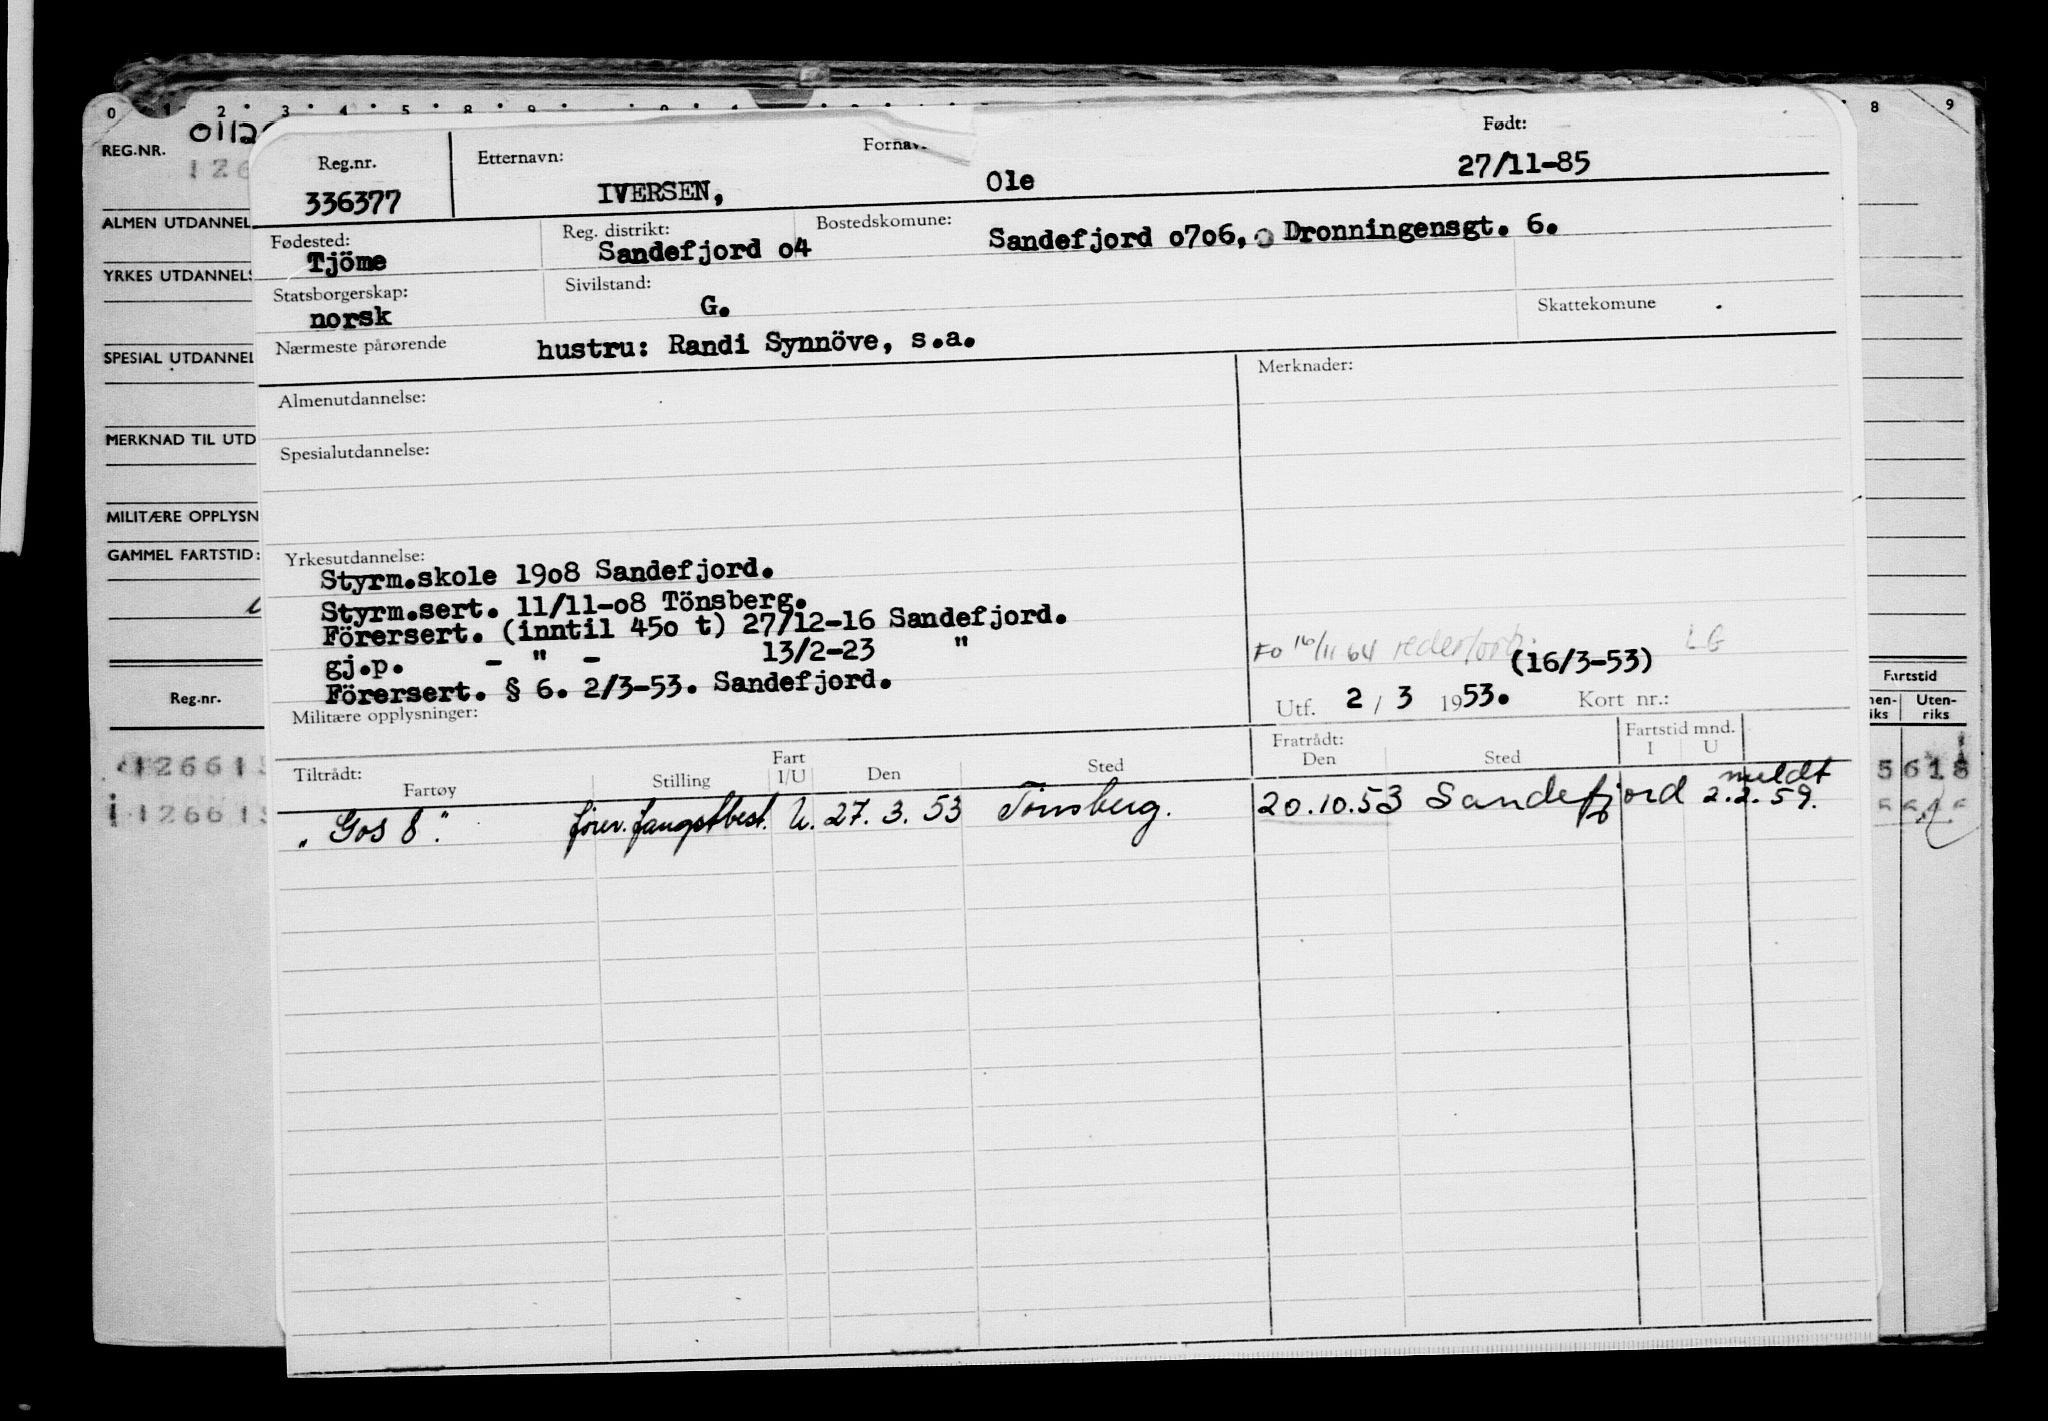 0 1 2 3 4 5 8 9 8 9
REG.NR. 0112
126
ALMEN UTDANNEL
YRKES UTDANNELS
SPESIAL UTDANNEL
MERKNAD TIL UTD
MILITÆRE OPPLYSN
GAMMEL FARTSTID:
Reg.nr.
126613
126613
Reg.nr. Etternavn: Fornav Født:
336377 IVERSEN, Ole 27/11-85
Fødested: Reg. distrikt: Bostedskomune:
Tjöme Sandefjord o4 Sandefjord o7o6, Dronningensgt. 6.
Statsborgerskap: Sivilstand: Skattekomune
norsk G.
Nærmeste pårørende hustru: Randi Synnöve, s.a.
Almenutdannelse: Merknader:
Spesialutdannelse:
Yrkesutdannelse:
Styrm.skole 19o8 Sandefjord.
Styrm.sert. 11/11-o8 Tönsberg.
Förersert. (inntil 45o t) 27/12-16 Sandefjord.
gj.p. - " - 13/2-23 "
Förersert. § 6. 2/3-53. Sandefjord.
FO 16/11 64 LG
(16/3-53)
Utf. 2 / 3 1953. Kort nr.:
Militære opplysninger:
Tiltrådt: Fratrådt: Fartstid mnd.
Fartøy Stilling Fart I/U Den Sted Den Sted I U
meldt
„Gos 8“. förer. fangstbest. U. 27. 3. 53 Tönsberg. 20.10.53 Sandefjord 2.2.59.
Fartstid
nen-
iks
Uten-
riks
5618